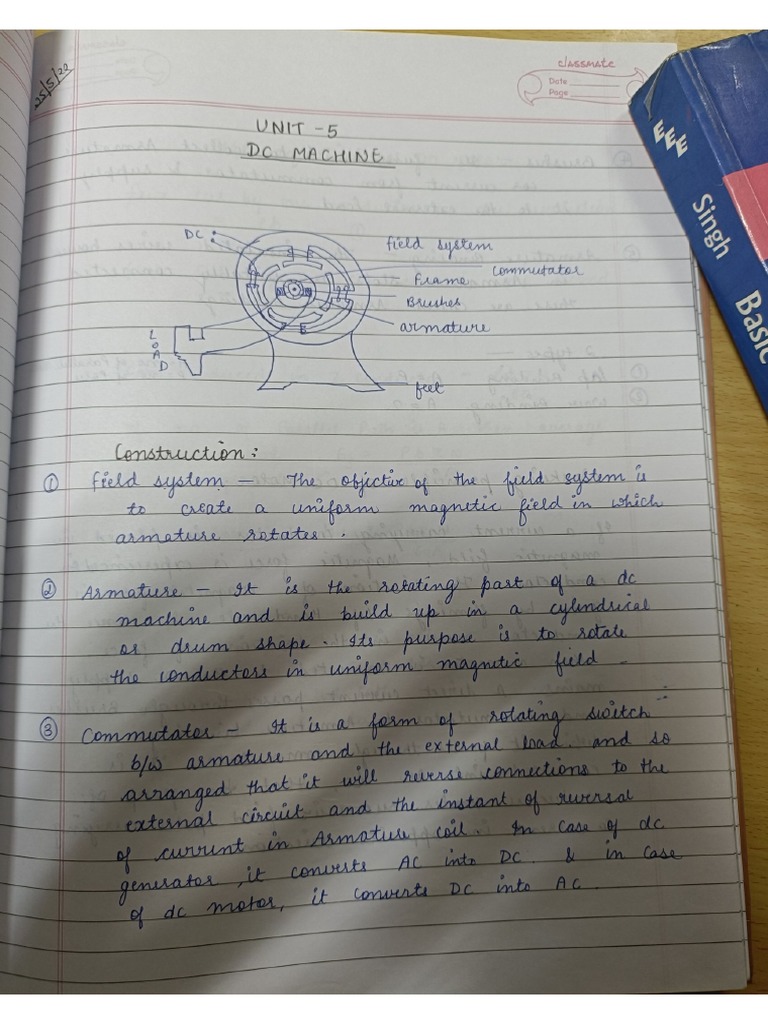 25/5/22
classmate
Date
Page
UNIT -5
DC MACHINE
DC
field system
commutator
Frame
Brushes
armature
LOAD
feet
Construction :
① field system - The objective of the field system is
to create a uniform magnetic field in which
armature rotates .
② Armature - It is the rotating part of a dc
machine and is build up in a cylindrical
or drum shape . Its purpose is to rotate
the conductors in uniform magnetic field
③ Commutator - It is a form of rotating switch
b/w armature and the external load. and so
arranged that it will reverse connections to the
external circuit and the instant of reversal
of current in Armature coil. In case of dc
generator, it converts AC into DC. & in case
of dc motor, it converts DC into AC.
EEE
Singh
Basic